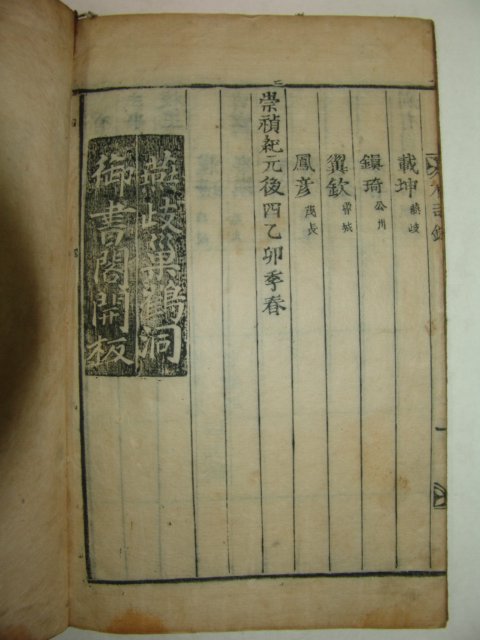 載坤 燕岐
鎭琦 公州
翼欽
鳳彦 茂長
崇禎紀元後四乙卯季春
燕歧巢鶴洞
御書閣開板